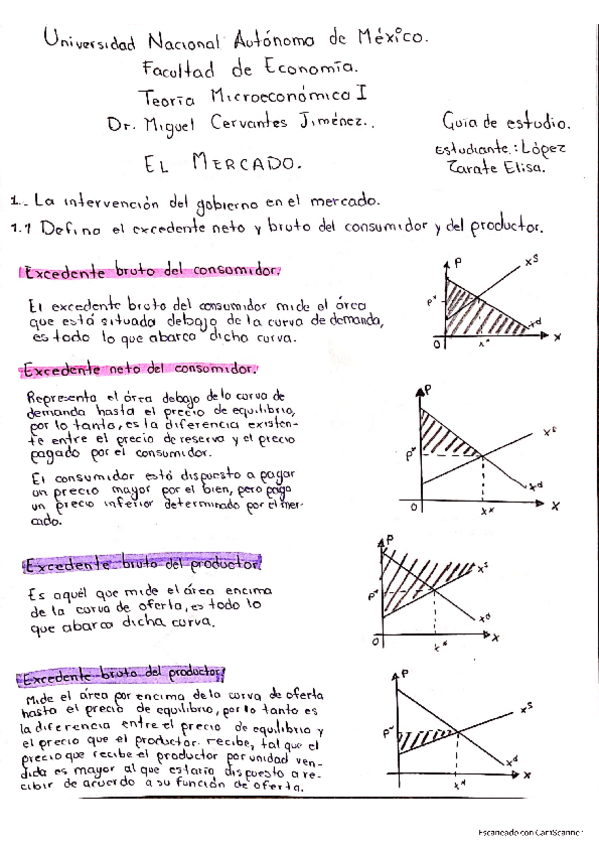 Universidad Nacional Autónoma de México.
Facultad de Economía.
Teoría Microeconómica I
Dr. Miguel Cervantes Jiménez.
Guía de estudio.
Estudiante: López
Zarate Elisa.
EL MERCADO.
1.- La intervención del gobierno en el mercado.
1.1 Defina el excedente neto y bruto del consumidor y del productor.
Excedente bruto del consumidor.
El excedente bruto del consumidor mide el área
que está situada debajo de la curva de demanda,
es todo lo que abarca dicha curva.
P
x^s
P*
x^d
0
x*
x
Excedente neto del consumidor.
Representa el área debajo de la curva de
demanda hasta el precio de equilibrio,
por lo tanto, es la diferencia existen-
te entre el precio de reserva y el precio
pagado por el consumidor.
El consumidor está dispuesto a pagar
un precio mayor por el bien, pero paga
un precio inferior determinado por el mer-
cado.
P
x^s
P*
x^d
0
x*
x
Excedente bruto del productor
Es aquél que mide el área encima
de la curva de oferta, es todo lo
que abarca dicha curva.
P
x^s
P*
x^d
0
x*
x
Excedente bruto del productor
Mide el área por encima de la curva de oferta
hasta el precio de equilibrio, por lo tanto es
la diferencia entre el precio de equilibrio y
el precio que el productor recibe, tal que el
precio que recibe el productor por unidad ven-
dida es mayor al que estaría dispuesto a re-
cibir de acuerdo a su función de oferta.
P
x^s
P*
x^d
0
x*
x
Escaneado con CamScanner